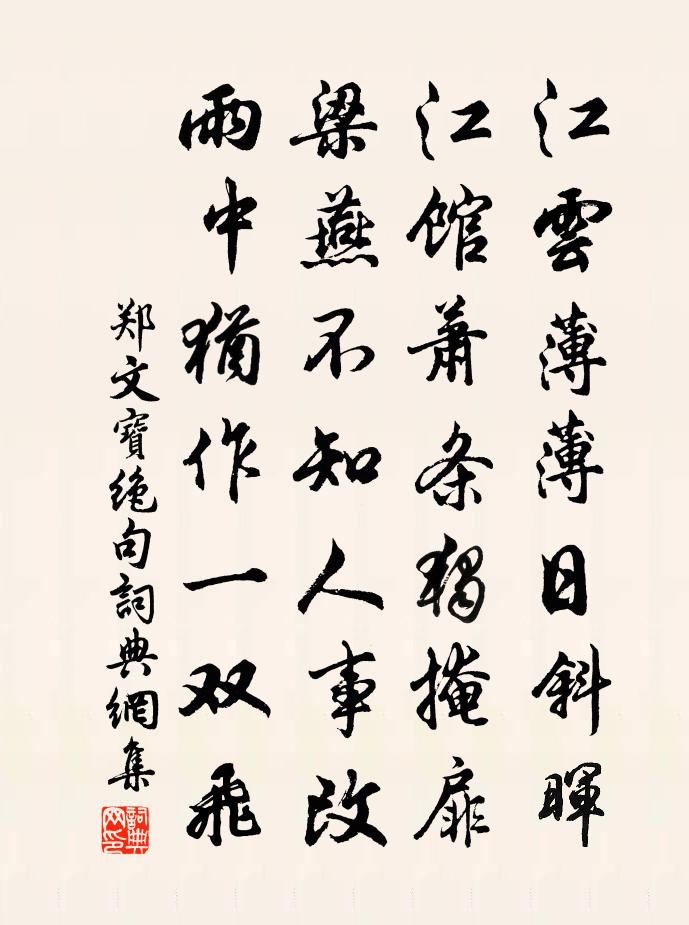 江雲薄薄日斜暉
江館蕭条獨掩扉
梁燕不知人事改
雨中猶作一双飛
郑文寶絶句詞典網集
詞典
网印